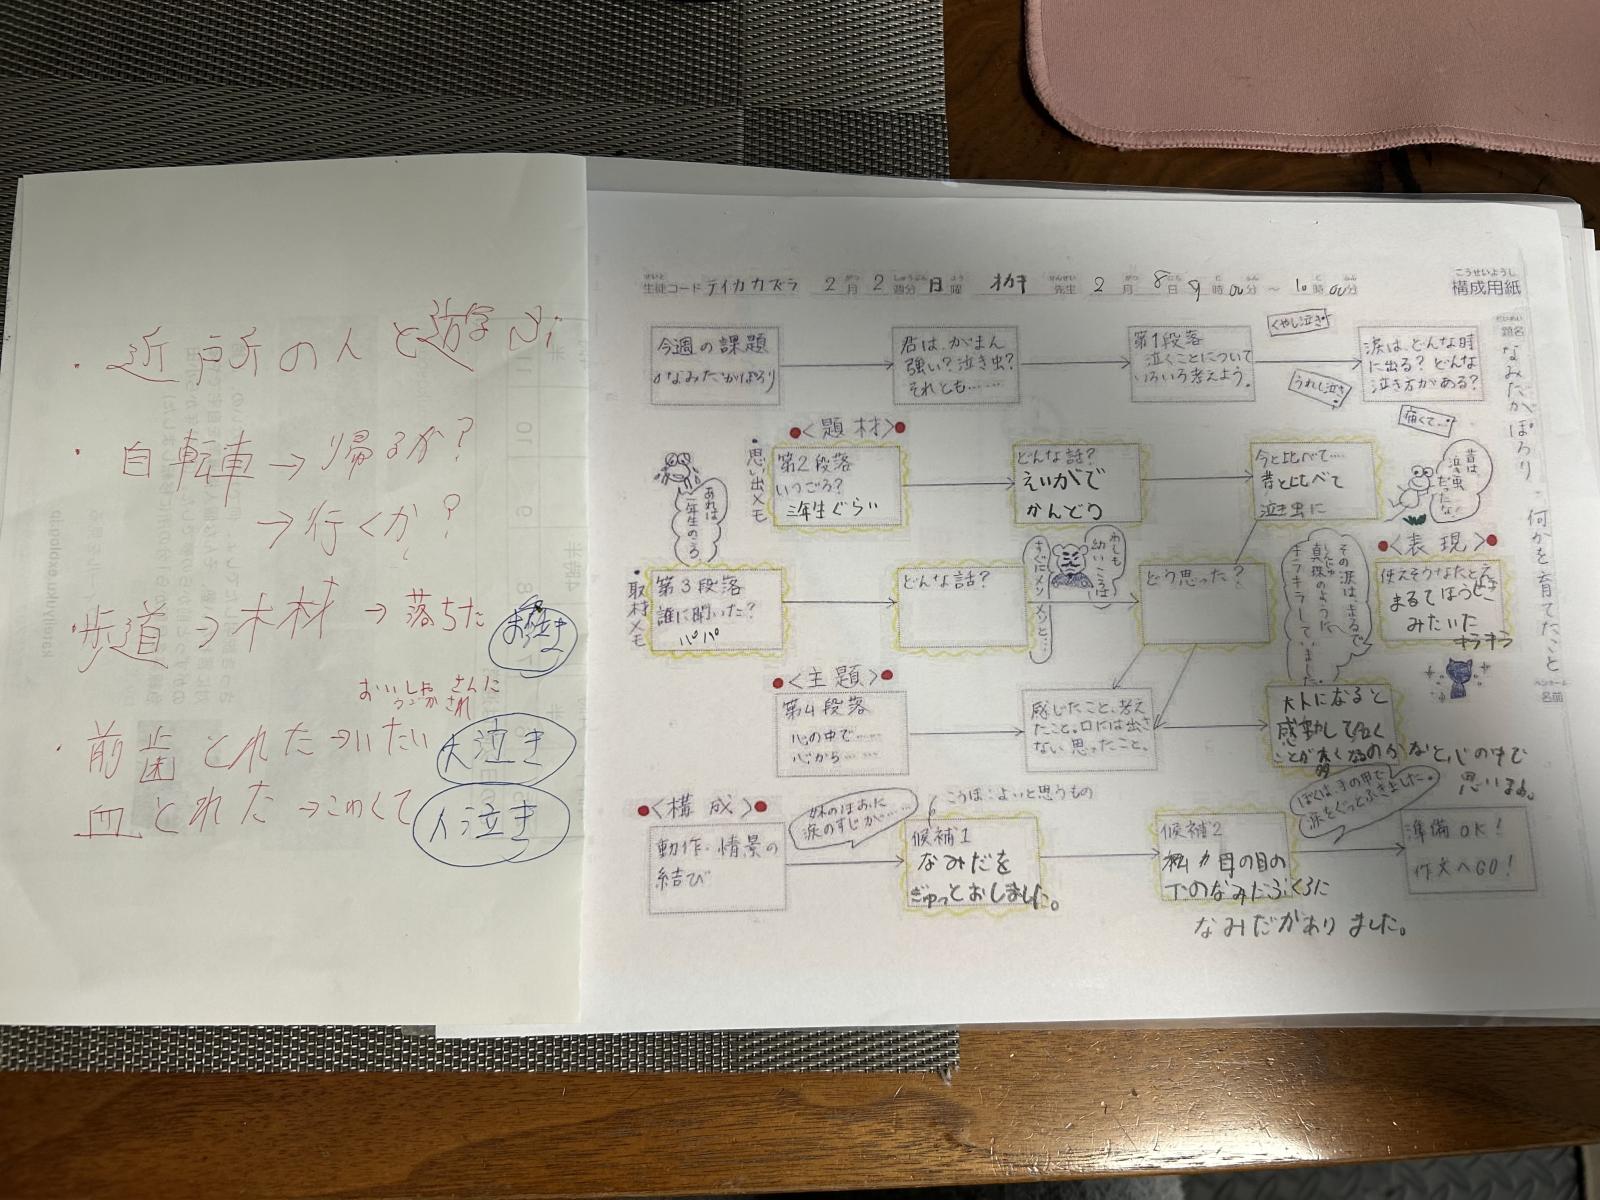 ・近所の人と遊ぶ
・自転車→帰るか?
→行くか?
・歩道→木材→落ちた
大泣き
おいしゃさんに
・前歯とれた→いたい
大泣き
血とれた→こわくて
大泣き
生徒コード テイカカズラ 2月 2週分 日曜 オカキ 先生 2月 8日 9時00分~10時00分
構成用紙
題名 なみだがぽろり・何かを育てたこと
名前
今週の課題
なみだがぽろり
君は、がまん
強い?泣き虫?
それとも……
第1段落
泣くことについて
いろいろ考えよう。
くやし泣き
うれし泣き
涙は、どんな時
に出る?どんな
泣き方がある?
痛くて…
●<題材>●
・思い出メモ
あれは
一年生のころ
第2段落
いつごろ?
三年生ぐらい
どんな話?
えいがで
かんどう
今と比べて…
昔と比べて
泣き虫に
昔は
泣き虫
だったな!
・取材メモ
第3段落
誰に聞いた?
パパ
どんな話?
わしも
幼いころは
すぐにメソメソと…
どう思った?
その涙は、まるで
真珠のように
キラキラしていました。
●<表現>●
使えそうなたとえ
まるでほうせき
みたいに
キラキラ
●<主題>●
第4段落
心の中で……
心から……
感じたこと、考え
たこと。口には出さ
ない思ったこと。
大人になると
感動して泣く
ことが多くなるのかなと、心の中で
思いました。
●<構成>●
動作・情景の
結び
妹のほおに
涙のすじが……
こうほ:よいと思うもの
候補1
なみだを
ぎゅっとおしました。
候補2
私の母の目の
下のなみだぶくろに
なみだがありました。
ぼくは、手の甲で
涙をぐっとふきました。
準備OK!
作文へGO!